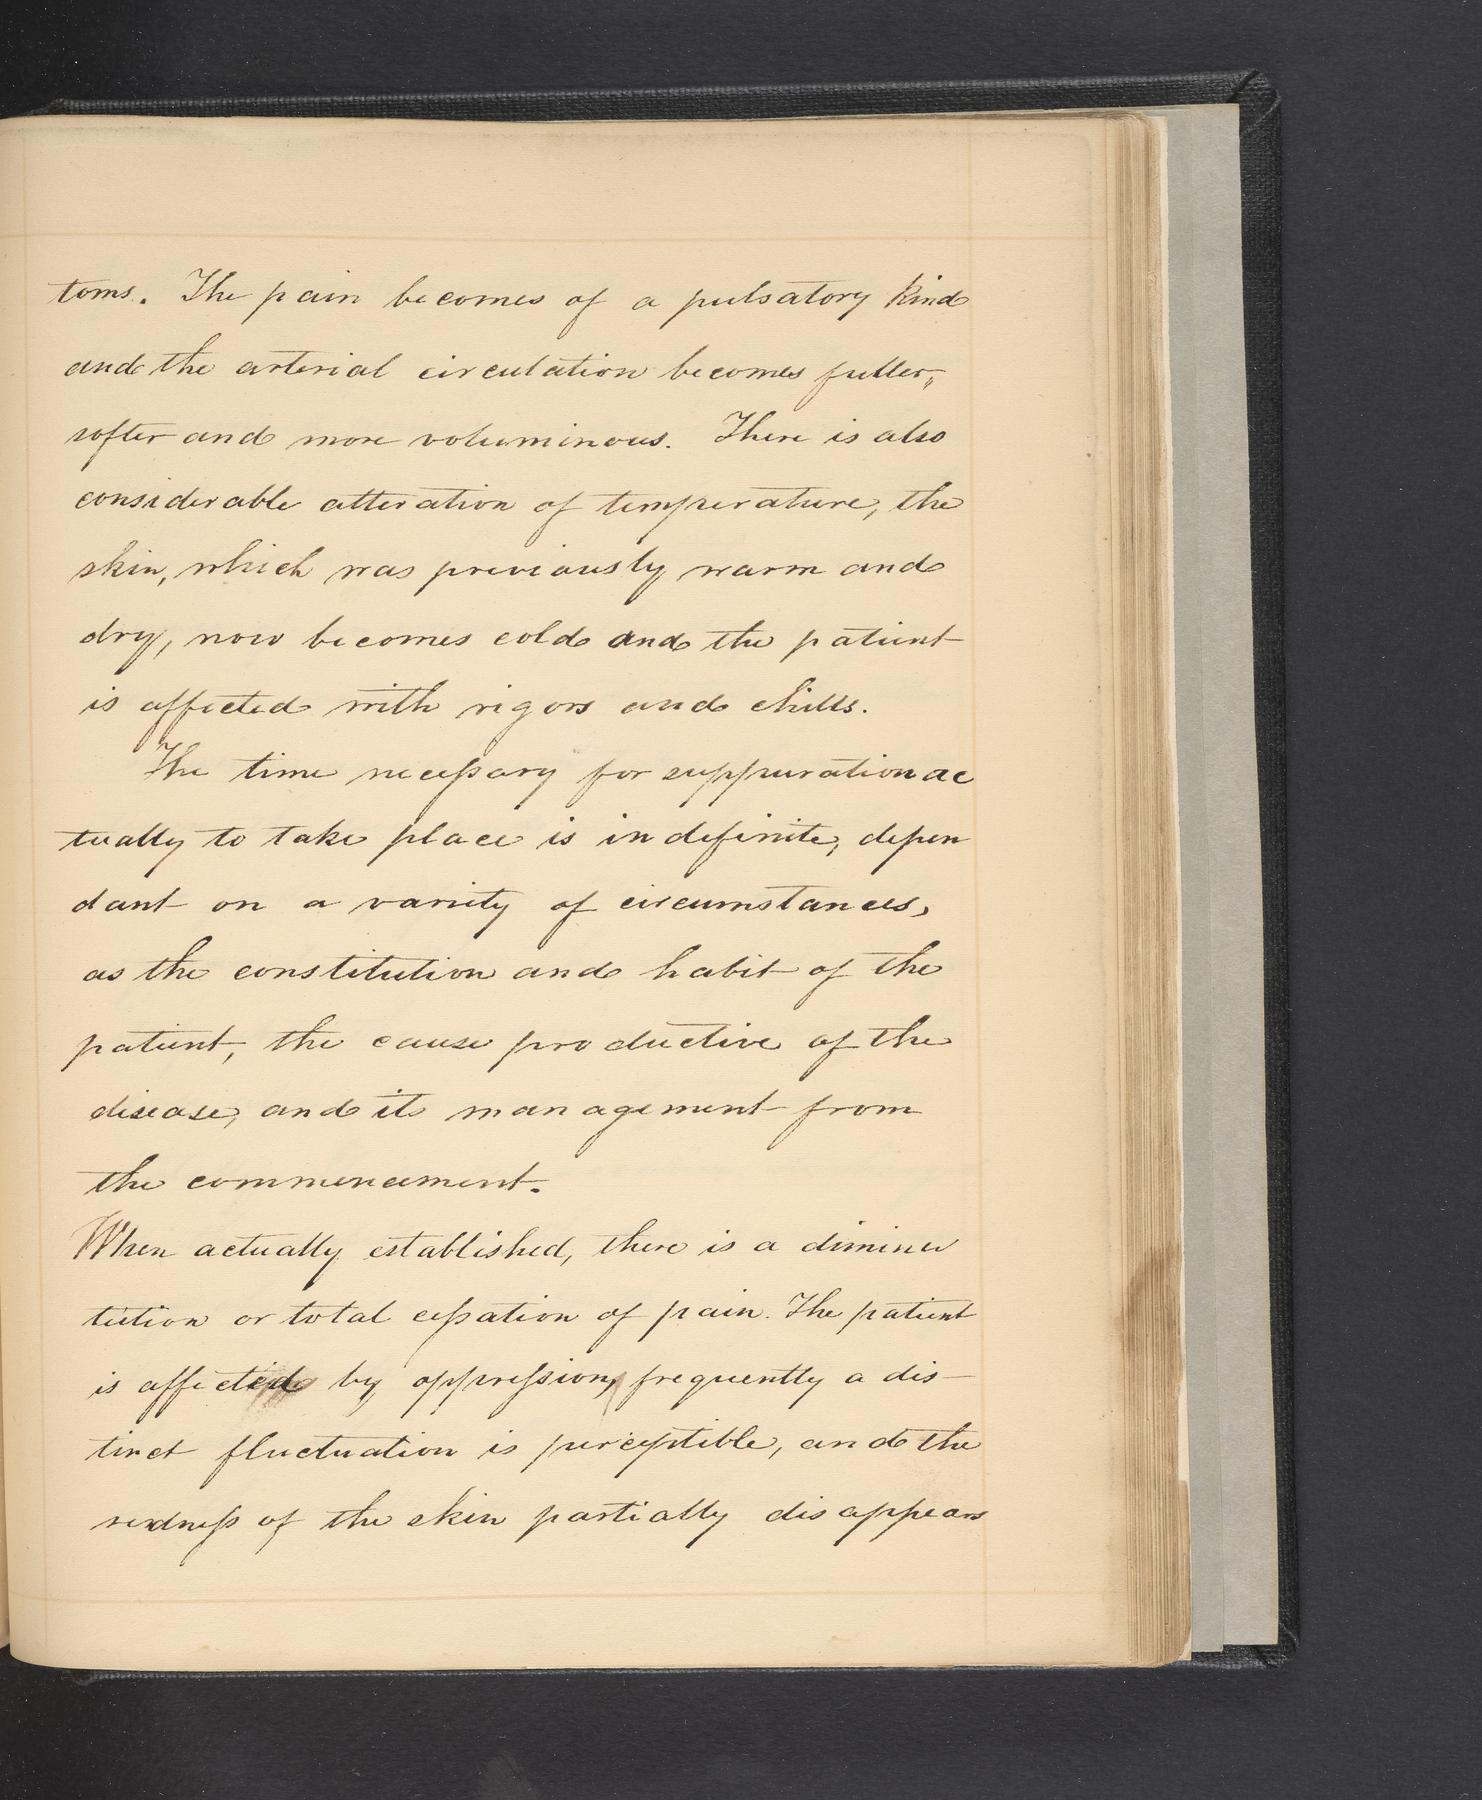 toms. The pain becomes of a pulsatory kind
and the arterial circulation becomes fuller,
softer and more voluminous. There is also
considerable alteration of temperature, the
skin, which was previously warm and
dry, now becomes cold and the patient
is affected with rigors and chills.
The time necessary for suppuration ac
tually to take place is indefinite, depen
dant on a variety of circumstances,
as the constitution and habit of the
patient, the cause productive of the
disease, and its management from
the commencement.
When actually established, there is a diminu
tution or total cessation of pain. The patient
is affected by oppression, frequently a dis-
tinct fluctuation is perceptible, and the
redness of the skin partially disappears